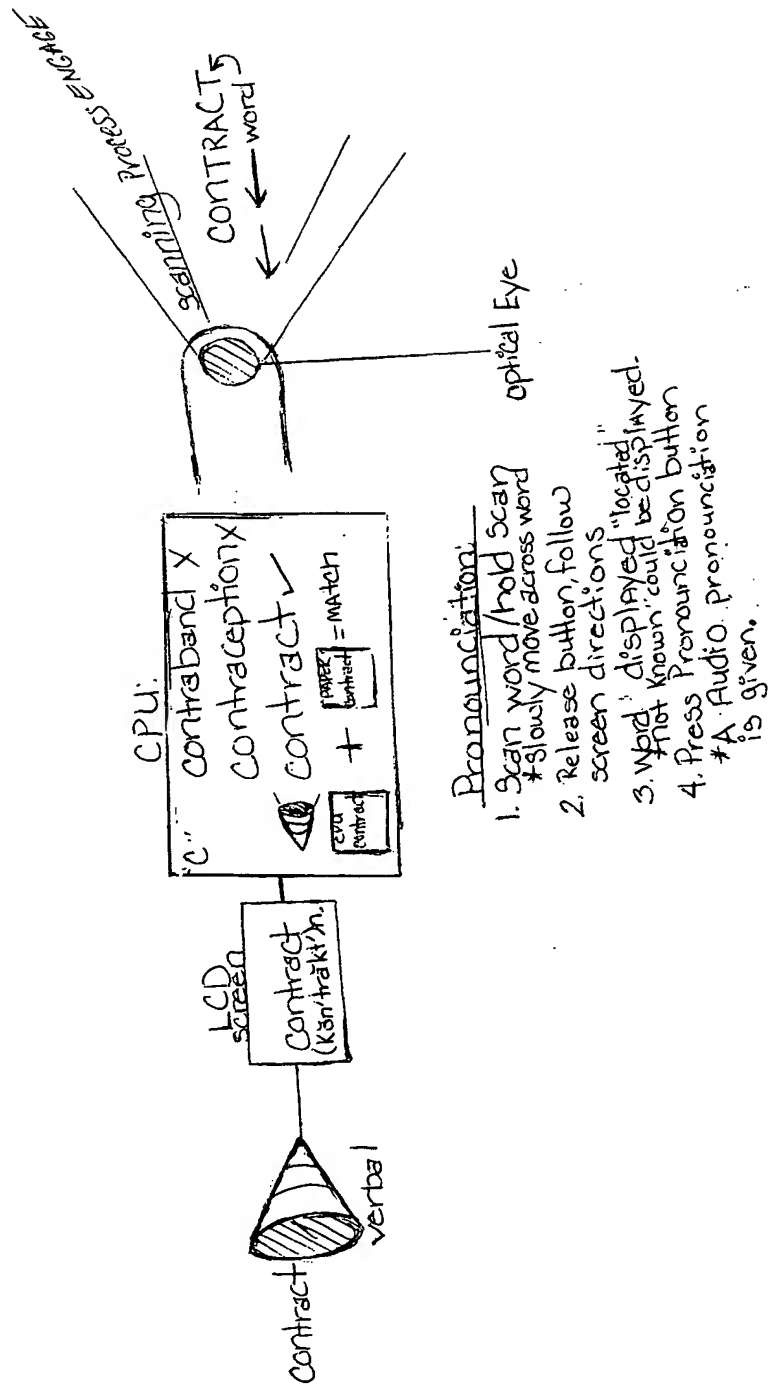 scanning process ENGAGE
CONTRACT
word
optical Eye
CPU:
"C" contraband X
contraception X
contract ✓
CPU
contract
+
PAPER
contract
= MAtch
LCD
screen
contract
(kŏn'trăkt')n.
contract
verbal
Pronounciation:
1. Scan word/hold scan
*slowly move across word
2. Release button, follow
screen directions
3. Word displAyed "located"
*"not known" could be displAyed.
4. Press Pronounciation button
*A Audio pronounciation
is given.